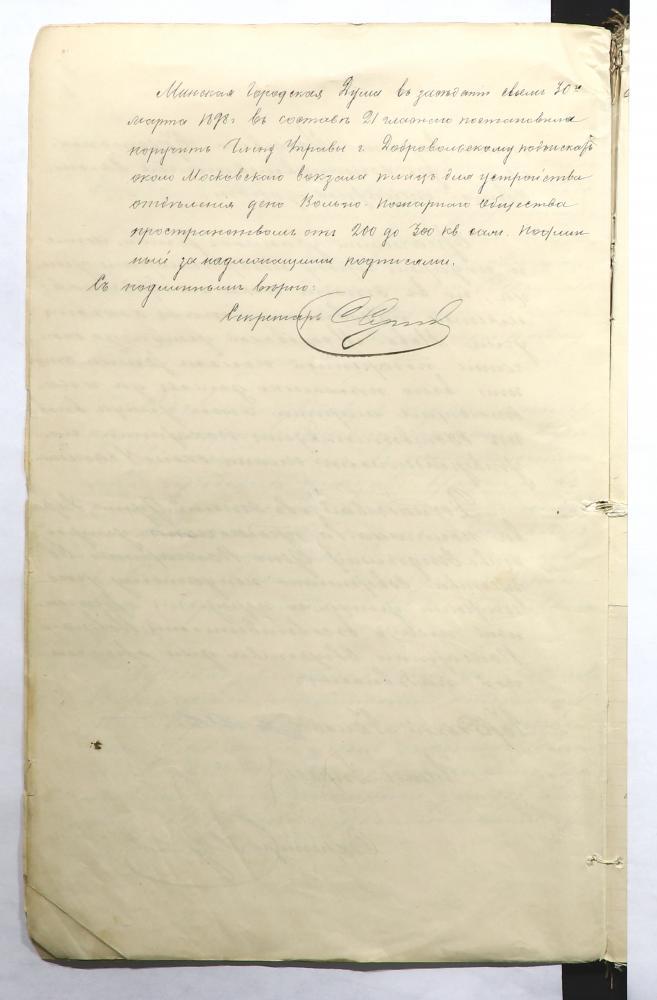 Минская Городская Дума въ засѣданіи своемъ 30го
марта 1898 г въ составѣ 21 гласнаго постановила
поручить Члену Управы г. Добровольскому подыскать
около Московскаго вокзала плацъ для устройства
отдѣленія депо Вольно-Пожарнаго Общества
пространствомъ отъ 200 до 300 кв саж. Подлин-
ный за надлежащими подписями.
Съ подлиннымъ вѣрно:
Секретарь